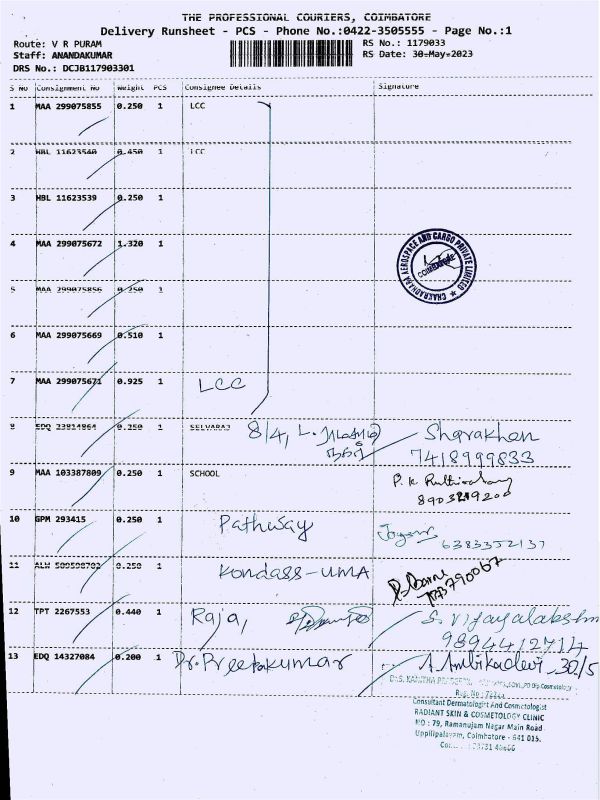 THE PROFESSIONAL COURIERS, COIMBATORE
Delivery Runsheet - PCS - Phone No.:0422-3505555 - Page No.:1
Route: V R PURAM
RS No.: 1179033
Staff: ANANDAKUMAR
RS Date: 30-May-2023
DRS No.: DCJB117903301
S No Consignment No Weight PCS Consignee Details Signature
1 MAA 299075855 0.250 1 LCC
2 HBL 11623540 0.450 1 LCC
3 HBL 11623539 0.250 1
4 MAA 299075672 1.320 1
CHAKRADHARA AEROSPACE AND CARGO PRIVATE LIMITED
COIMBATORE
5 MAA 299075856 0.250 1
6 MAA 299075669 0.510 1
7 MAA 299075671 0.925 1 LCC
8 EDQ 23814864 0.250 1 SELVARAJ 8/4, L. Sharakhan
7418999833
9 MAA 103387809 0.250 1 SCHOOL P. K
10 GPM 293415 0.250 1 Pathway
6383352137
11 ALW 0.250 1 Kondass-UMA
12 TPT 2267553 0.440 1 Raja, S. Vijayalakshm
9894412714
13 EDQ 14327084 0.200 1 Dr. Preethakumar A. Ambikadevi, 30/5
Consultant Dermatologist And Cosmetologist
RADIANT SKIN & COSMETOLOGY CLINIC
NO : 79, Ramanujam Nagar Main Road
Uppilipalayam, Coimbatore - 641 015.